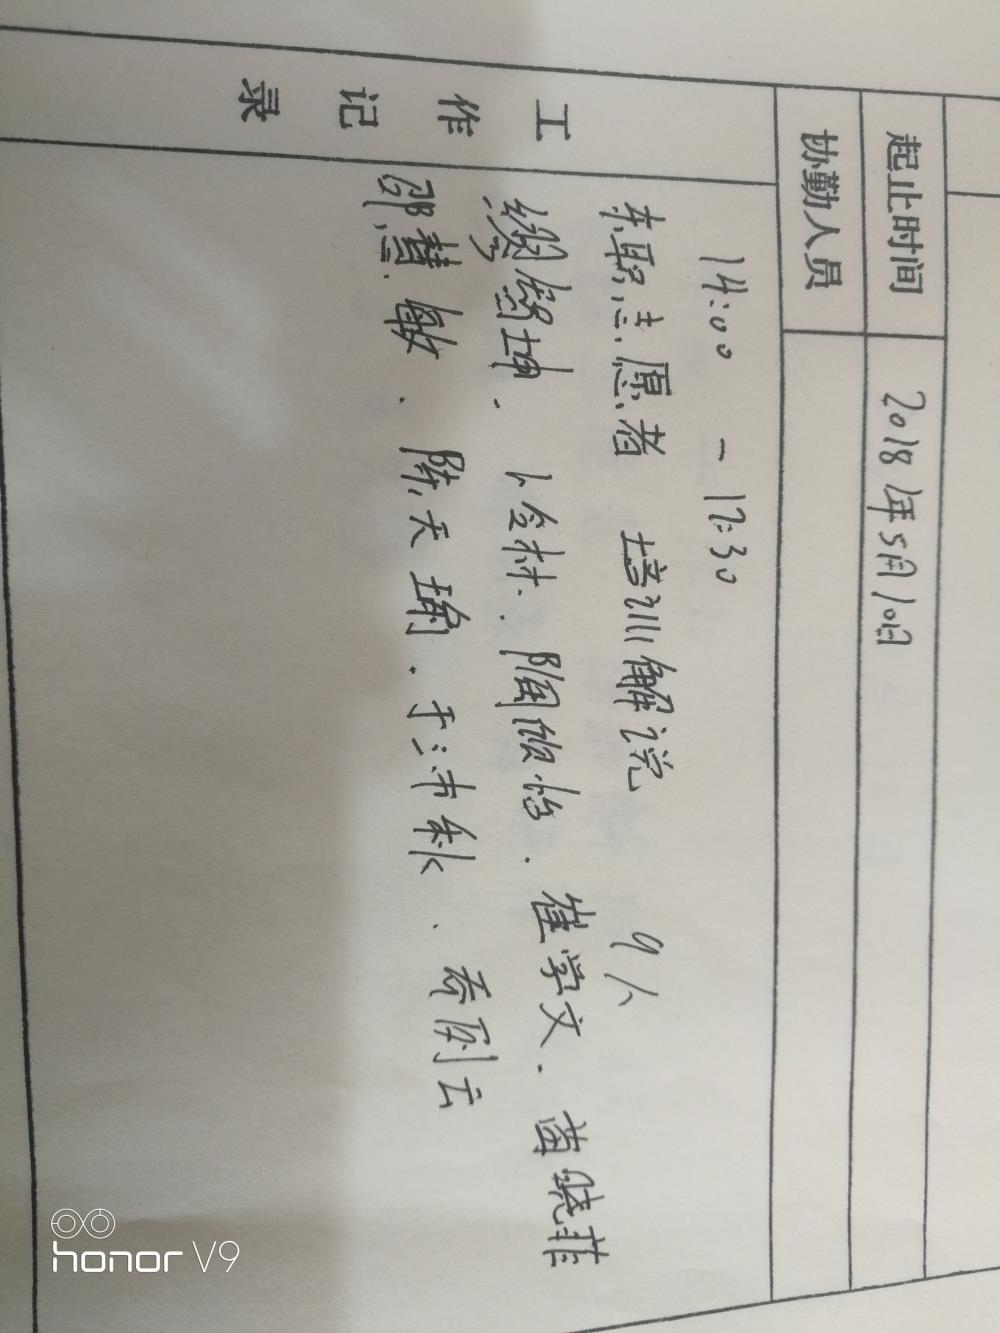 起止时间 2018年5月10日
协勤人员
工作记录
14:00 — 17:30
东聪志愿者 培训解说 9人
缪馥坤、卜令材、陶倾怡、崔学文、苗晓菲
邵慧敏、陈天瑜、于沛秋、乔俐云
honor V9